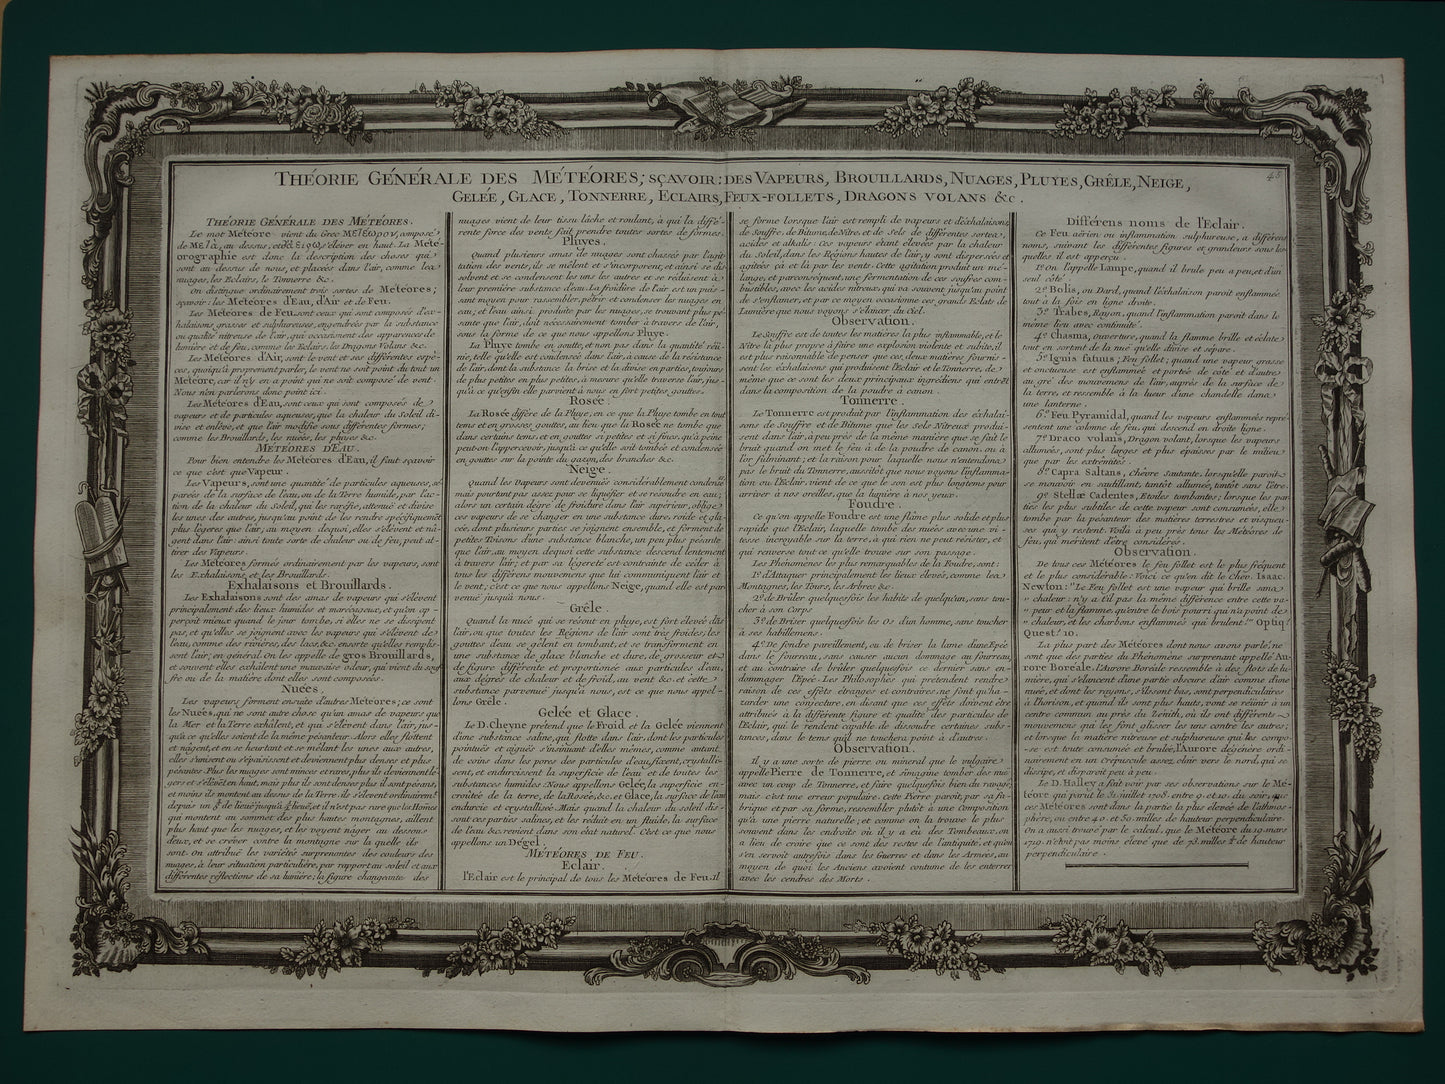 48
THÉORIE GÉNÉRALE DES MÉTÉORES, SÇAVOIR: DES VAPEURS, BROUILLARDS, NUAGES, PLUYES, GRÊLE, NEIGE,
GELÉE, GLACE, TONNERRE, ECLAIRS, FEUX-FOLLETS, DRAGONS VOLANS &c.
THÉORIE GÉNÉRALE DES MÉTÉORES.
Le mot Météore vient du Grec Μετέωρον, composé
de μετὰ, au dessus, et d'ἀείρω, s'élever en haut. La Mété-
orographie est donc la description des choses qui
sont au dessus de nous, et placées dans l'air, comme les
nuages, les Eclairs, le Tonnerre &c.
On distingue ordinairement trois sortes de Météores;
sçavoir: les Météores d'Eau, d'Air et de Feu.
Les Météores de Feu, sont ceux qui sont composés d'ex-
halaisons grasses et sulphureuses, engendrées par la substance
ou qualité nitreuse de l'air, qui occasionent des apparences de
lumière et de feu, comme les Eclairs, les Dragons Volans &c.
Les Météores d'Air, sont le vent et ses différentes espè-
ces, quoiqu'à proprement parler, le vent ne soit point du tout un
Météore, car il n'y en a point qui ne soit composé de vent.
Nous n'en parlerons donc point ici.
Les Météores d'Eau, sont ceux qui sont composés de
vapeurs et de particules aqueuses, que la chaleur du Soleil di-
vise et enlève, et que l'air modifie sous différentes formes;
comme les Brouillards, les nuées, les pluyes &c.
MÉTÉORES D'EAU.
Pour bien entendre les Météores d'Eau, il faut sçavoir
ce que c'est que Vapeur.
Les Vapeurs, sont une quantité de particules aqueuses, sé-
parées de la surface de l'eau, ou de la Terre humide, par l'ac-
tion de la chaleur du Soleil, qui les raréfie, atténue et divise
les unes des autres, jusqu'au point de les rendre spécifiquement
plus légères que l'air, au moyen dequoi, elles s'élevent et na-
gent dans l'air: ainsi toute sorte de chaleur ou de feu, peut at-
tirer des Vapeurs.
Les Météores formés ordinairement par les vapeurs, sont
les Exhalaisons et les Brouillards.
Exhalaisons et Brouillards.
Les Exhalaisons sont des amas de vapeurs qui s'élèvent
principalement des lieux humides et marécageux, et qu'on ap-
perçoit mieux quand le jour tombe, si elles ne se dissipent
pas, et qu'elles se joignent avec les vapeurs qui s'élèvent de
l'eau, comme des rivières, des lacs, &c. ensorte qu'elles remplis-
sent l'air, en général. On les appelle de gros Brouillards,
et souvent elles exhâlent une mauvaise odeur, qui vient du souf-
fre ou de la matière dont elles sont composées.
Nuées.
Les vapeurs forment ensuite d'autres Météores; ce sont
les Nuées, qui ne sont autre chose qu'un amas de vapeurs que
la Mer et la Terre exhâlent, et qui s'élèvent dans l'air, jus-
qu'à ce qu'elles soient de la même pésanteur. Alors elles flottent
et nâgent, et en se heurtant et se mêlant les unes aux autres,
elles s'unissent ou s'épaississent et deviennent plus denses et plus
pésantes. Plus les nuages sont minces et rares, plus ils deviennent lé-
gers et s'élèvent en haut, mais plus ils sont denses plus il sont pésans,
et moins ils montent au dessus de la Terre. ils s'élèvent ordinairemt.
depuis un ¼ de lieue jusqu'à ¾ lieuë, et il n'est pas rare que les Homes
qui montent au sommet des plus hautes montagnes, aillent
plus haut que les nuages, et les voyent nâger au dessous
d'eux, et se crêver contre la montagne sur la quelle ils
sont. On attribue les variétés surprenantes des couleurs des
nuages, à leur situation particulière, par rapport au soleil et aux
différentes réflections de sa lumière; la figure changeante des
nuages vient de leur tissu lâche et roulant, à qui la diffé-
rente force des vents fait prendre toutes sortes de formes.
Pluyes.
Quand plusieurs amas de nuages sont chassés par l'agi-
tation des vents, ils se mêlent et s'incorporent, et ainsi se dis-
solvent et se condensent les uns les autres et se réduisent à
leur première substance d'eau. La froidure de l'air est un puis-
sant moyen pour rassembler, pétrir et condenser les nuages en
eau; et l'eau ainsi produite par les nuages, se trouvant plus pé-
sante que l'air, doit nécessairement tomber à travers de l'air,
sous la forme de ce que nous appellons Pluye.
La Pluye tombe en goutte, et non pas dans la quantité réü-
nie, telle qu'elle est condensée dans l'air, à cause de la résistance
de l'air, dont la substance la brise et la divise en parties, toujours
de plus petites en plus petites, à mesure qu'elle traverse l'air, jus-
qu'à ce qu'enfin elle parvient à nous en fort petites gouttes.
Rosée.
La Rosée différe de la Pluye, en ce que la Pluye tombe en tout
tems et en grosses gouttes, au lieu que la Rosée ne tombe que
dans certains tems, et en gouttes si petites et si fines, qu'à peine
peut-on l'appercevoir, jusqu'à ce qu'elle soit tombée et condensée
en gouttes sur la pointe du gazon, des branches &c.
Neige.
Quand les Vapeurs sont devenuës considérablement condensées
mais pourtant pas assez pour se liquefier et se résoudre en eau;
alors un certain dégré de froidure dans l'air supérieur, oblige
ces vapeurs de se changer en une substance dure, roide et gla-
cée, dont plusieurs parties se joignent ensemble, et forment de
petites Toisons d'une substance blanche, un peu plus pésante
que l'air, au moyen dequoi cette substance descend lentement
à travers l'air; et par sa légèreté est contrainte de céder à
tous les différens mouvemens que lui communiquent l'air et
le vent; c'est ce que nous appellons Neige, quand elle est par-
venuë jusqu'à nous.
Grêle.
Quand la nuée qui se résout en pluye, est fort élevée dans
l'air, ou que toutes les Régions de l'air sont très froides, les
gouttes d'eau se gèlent en tombant, et se transforment en
une substance de glace blanche et dure, de grosseur et
de figure différente et proportionée aux particules d'eau,
aux dégrés de chaleur et de froid, au vent &c. et cette
substance parvenuë jusqu'à nous, est ce que nous appel-
lons Grêle.
Gelée et Glace.
Le D. Cheyne prétend que le Froid et la Gelée viennent
d'une substance saline, qui flotte dans l'air, dont les particules
pointuës et aiguës s'insinuant d'elles mêmes, comme autant
de coins dans les pores des particules d'eau, fixent, crystalli-
sent, et endurcissent la superficie de l'eau et de toutes les
substances humides. Nous appellons Gelée, la superficie en-
croûtée de la terre, de la Rosée, &c. et Glace, la surface de l'eau
endurcie et crystallisée. Mais quand la chaleur du soleil dis-
sout ces parties salines, et les réduit en un fluide, la surface
de l'eau &c. revient dans son état naturel. C'est ce que nous
appellons un Dégel.
MÉTÉORES DE FEU.
Eclair.
l'Eclair est le principal de tous les Météores de Feu. Il
se forme lorsque l'air est rempli de vapeurs et d'éxhalaisons
de Souffre, de Bitume, de Nitre, et de Sels de différentes sortes,
acides et alkalis. Ces vapeurs étant élevées par la chaleur
du Soleil, dans les Régions hautes de l'air, y sont dispersées et
agitées çà et là par les vents. Cette agitation produit un mé-
lange, et par conséquent, une fermentation de ces souffres com-
bustibles, avec les acides nitreux, qui va souvent jusqu'au point
de s'enflamer, et par ce moyen occasionne ces grands Eclats de
Lumière que nous voyons s'élancer du Ciel.
Observation.
Le Souffre est de toutes les matières la plus inflammable, et le
Nitre la plus propre à faire une explosion violente et subite, il
est plus raisonnable de penser que ces deux matières fournis-
sent les exhalaisons qui produisent l'Eclair et le Tonnerre, de
même que ce sont les deux principaux ingrédiens qui entrent
dans la composition de la poudre à canon.
Tonnerre.
Le Tonnerre est produit par l'inflammation des éxhalai-
sons de Souffre et de Bitume que les Sels Nitreux produi-
sent dans l'air, à peu près de la même manière que se fait le
bruit quand on met le feu à de la poudre de canon. ou à
l'or fulminant; et la raison pour laquelle nous n'entendons
pas le bruit du Tonnerre, aussitôt que nous voyons l'inflamma-
tion ou l'Eclair. vient de ce que le son est plus longtems pour
arriver à nos oreilles, que la lumière à nos yeux.
Foudre.
Ce qu'on appelle Foudre est une flâme plus solide et plus
rapide que l'Eclair, laquelle tombe des nuées avec une vi-
tesse incroyable sur la terre, à qui rien ne peut résister, et
qui renverse tout ce qu'elle trouve sur son passage.
Les Phénomènes les plus remarquables de la Foudre, sont:
1º. d'Attaquer principalement les lieux élevés, comme les
Montagnes, les Tours, les Arbres &c.
2º. de Brûler quelquesfois les habits de quelqu'un, sans tou-
cher à son Corps.
3º. de Briser quelquesfois les Os d'un homme, sans toucher
à ses habillemens.
4º. De fondre pareillement, ou de briser la lame d'une Epée
dans le fourreau, sans causer aucun dommage au fourreau
et au contraire de brûler quelquesfois ce dernier sans en-
dommager l'Epée. Les Philosophes qui prétendent rendre
raison de ces effêts étranges et contraires, ne font qu'ha-
tarder une conjecture, en disant que ces effêts doivent être
attribués à la différente figure et qualité des particules de
l'Eclair, qui le rendent capable de dissoudre certaines subs-
tances, dans le tems qu'il ne touchera point à d'autres.
Observation.
Il y a une sorte de pierre ou mineral que le vulgaire
appelle Pierre de Tonnerre, et s'imagine tomber des nues
avec un coup de Tonnerre, et faire quelquesfois bien du ravage
mais c'est une erreur populaire. Cette Pierre paroit, par sa fa-
brique et par sa forme, ressembler plutôt à une Composition
qu'à une pierre naturelle; et comme on la trouve le plus
souvent dans les endroits où il y a eu des Tombeaux, on
a lieu de croire que ce sont des restes de l'antiquité, et qu'on
s'en servoit autrefois dans les Guerres et dans les Armées, au
moyen de quoi les Anciens avoient coutume de les enterrer
avec les cendres des Morts.
Différens noms de l'Eclair.
Ce Feu aérien ou inflammation sulphureuse, a différens
noms, suivant les différentes figures et grandeurs sous les-
quelles il est apperçu.
1º. On l'appelle Lampe, quand il brule peu a peu, et d'un
seul côté.
2º. Bolis, ou Dard, quand l'éxhalaison paroit enflammée
tout à la fois en ligne droite.
3º. Trabes, Rayon, quand l'inflammation paroit dans le
même lieu avec continuité.
4º. Chasma, ouverture, quand la flamme brille et éclate
tout en sortant de la nuë qu'elle divise et sépare.
5º. Ignis fatuus; Feu follet; quand une vapeur grasse
et onctueuse est enflammée et portée de côté et d'autre
au gré des mouvemens de l'air, auprès de la surface de
la terre, et ressemble à la lueur d'une chandelle dans
une lanterne.
6º. Feu Pyramidal, quand les vapeurs enflammées repré-
sentent une colonne de feu, qui descend en droite ligne.
7º. Draco volans, Dragon volant, lorsque les vapeurs
allumées, sont plus larges et plus épaisses par le milieu
que par les extrémités.
8º. Capra Saltans, Chèvre sautante, lorsqu'elle paroit
se mouvoir en sautillant, tantôt allumée, tantôt sans l'être.
9º. Stellæ Cadentes, Etoiles tombantes; lorsque les par-
ties les plus subtiles de cette vapeur sont consumées, elle
tombe par la pésanteur des matières terrestres et visqueu-
ses qui y restent. Voilà à peu près tous les Météores de
feu, qui méritent d'être considérés.
Observation.
De tous ces Météores le feu follet est le plus fréquent
et le plus considérable: Voici ce qu'en dit le Chev. Isaac
Newton: "Le Feu follet est une vapeur qui brille sans
" chaleur: n'y a t'il pas la même différence entre cette va-
" peur et la flamme, qu'entre le bois pourri qui n'a point de
" chaleur, et les charbons enflammés qui brulent?" Optiq.
Quest. 10.
La plus part des Météores dont nous avons parlé, ne
sont que des parties du Phénomène surprenant appellé Au-
rore Boréale. L'Aurore Boréale ressemble à des flots de lu-
mière, qui s'élancent d'une partie obscure d'air comme d'une
nuée, et dont les rayons, s'ils sont bas, sont perpendiculaires
à l'horison, et quand ils sont plus hauts, vont se réünir à un
centre commun au près du Zenith, où ils ont différents
mouvemens qui les font glisser les uns contre les autres;
et lorsque la matière nitreuse et sulphureuse qui les compo-
se est toute consumée et brulée, l'Aurore dégénère ordi-
nairement en un crépuscule assez clair vers le nord, qui se
dissipe, et disparoit peu à peu.
Le D. Halley a fait voir par ses observations sur le Mé-
téore qui parut le 31 juillet 1708. entre 9 et 10. du soir, que
ces Météores sont dans la partie la plus elevée de l'athmos-
phère, ou entre 40 et 50. milles de hauteur perpendiculaire.
On a aussi trouvé par le calcul, que le Météore du 19 mars
1719. n'étoit pas moins elevé que de 73. milles ½ de hauteur
perpendiculaire.